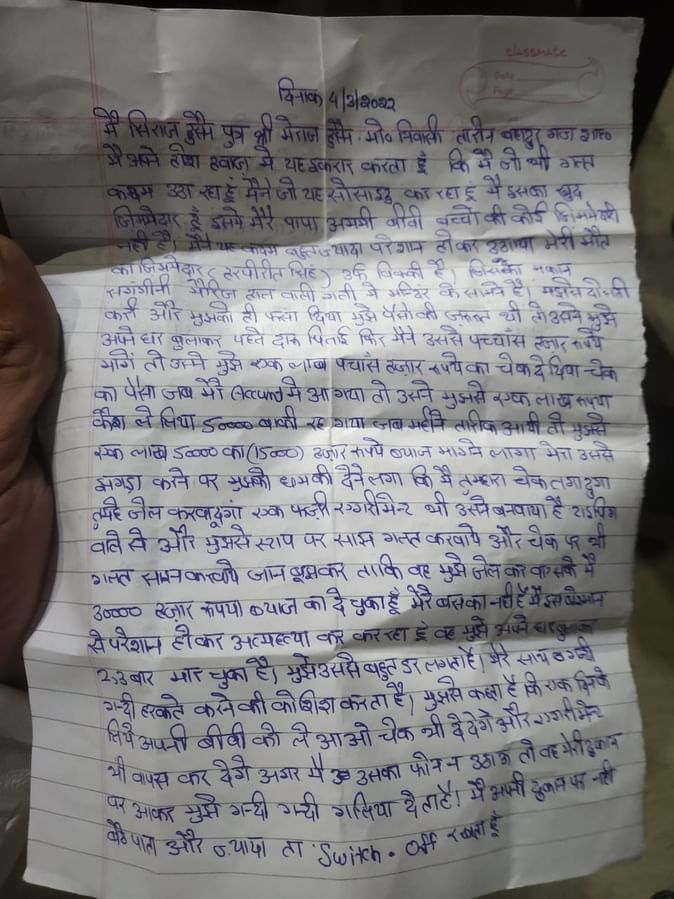 classmate
Date
Page
दिनाक 4/3/2022
मै सिराज हुसैन पुत्र श्री मेराज हुसैन मो० निवासी तारीन बहादुर गंज शा०
मै अपने होश हवाज़ मे यह इकरार करता हूं कि मै जो भी गलत
कदम उठा रहा हूं मैने जो यह सोसाइड कर रहा हूं मै इसका खुद
जिम्मेदार हूं इसमे मेरे पापा अम्मी बीवी बच्चो की कोई जिम्मेदारी
नही है। मैने यह कदम बहुत ज्यादा परेशान होकर उठाया मेरी मौत
का जिम्मेदार (हरपीरीत सिंह) उर्फ विक्की है। जिसका मकान
मैरिज हाल वाली गली मे मन्दिर के सामने है। दोस्ती
करी और मुझको ही फसा दिया मुझे पैसो की जरूरत थी तो उसने मुझे
अपने घर बुलाकर पहले दारू पिलाई फिर मैने उससे पच्चास हज़ार रूपये
मागें तो उसने मुझे एक लाख पचांस हज़ार रूपये का चेक दे दिया चेक
का पैसा जब मेरे Accund मे आ गया तो उसने मुझसे एक लाख रूपया
कैश ले लिया 50000 बाकी रह गया जब महीने तारीक आयी तो मुझसे
एक लाख 50000 का (15000) हज़ार रूपये ब्याज मागने लागा मेरा उससे
झगड़ा करने पर मुझको धमकी देने लगा कि मै तुम्हारा चेक लगा दुगा
तुम्हे जेल करवा दूगां एक फर्ज़ी एगरीमेन्ट भी उसने बनवाया है टाइपिंग
वाले से और मुझसे स्टाप पर साइन गलत करवाये और चेक पर भी
गलत साइन करवाये जान बूझकर ताकि वह मुझे जेल करवा सके मै
30000 हज़ार रूपया ब्याज का दे चुका हूं मेरे बस का नही है मै इस
से परेशान होकर अत्महत्या कर कर रहा हूं वह मुझे अपने घर बुलाकर
2,3 बार मार चुका है। मुझे उससे बहुत डर लगता है। मेरे साथ
गन्दी हरकते करने की कोशिश करता है। मुझसे कहता है कि एक दिन के
लिये अपनी बीवी को ले आओ चेक भी दे देगे और एगरीमेन्ट
भी वापस कर देगे अगर मै उसका फोन न उठाऊ तो वह मेरी दुकान
पर आकर मुझे गन्दी गन्दी गालिया देता है। मै अपनी दुकान पर नही
बैठ पाता और ज्यादा ता Switch. off रखता हूं